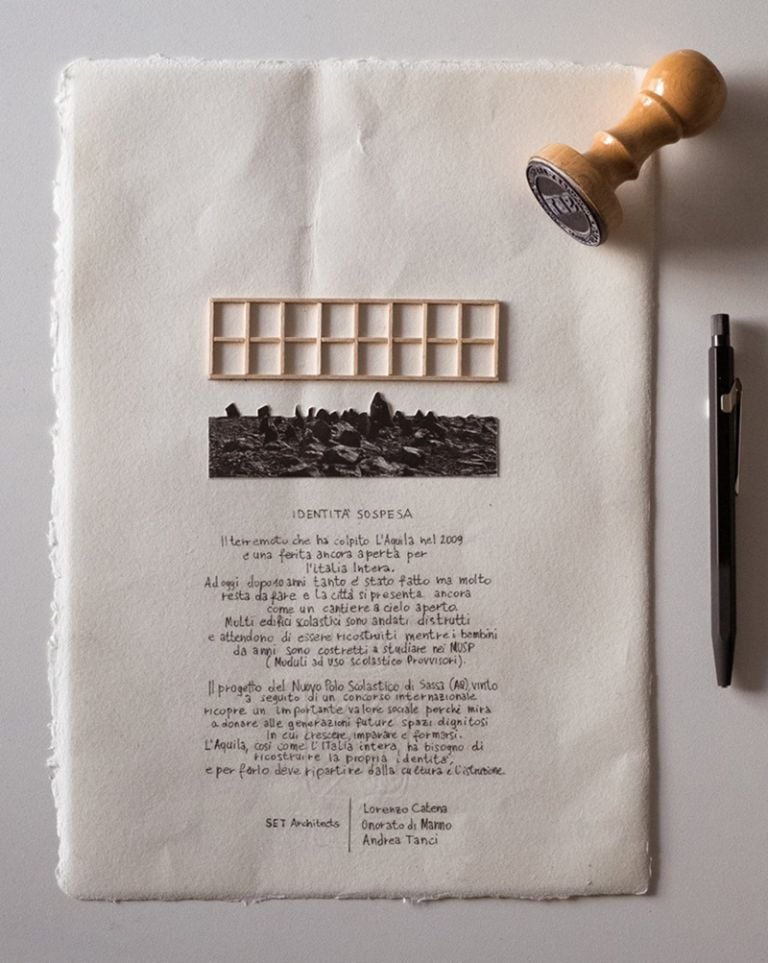 IDENTITÀ SOSPESA
Il terremoto che ha colpito L'Aquila nel 2009
e una ferita ancora aperta per
l'Italia Intera.
Ad oggi dopo 10 anni tanto é stato fatto ma molto
resta da fare e la città si presenta ancora
come un cantiere a cielo aperto.
Multi edifici scolastici sono andati distrutti
e attendono di essere ricostruiti mentre i bambini
da anni sono costretti a studiare nei MUSP
(Moduli ad uso scolastico Provvisori).
Il progetto del Nuovo Polo Scolastico di Sassa (AQ), vinto
a seguito di un concorso internazionale
ricopre un importante valore sociale perché mira
a donare alle generazioni future spazi dignitosi
in cui crescere, imparare e formarsi.
L'Aquila, così come l'Italia intera, ha bisogno di
ricostruire la propria identità,
e per farlo deve ripartire dalla cultura e l'istruzione.
SET Architects
Lorenzo Catena
Onorato di Manno
Andrea Tanci